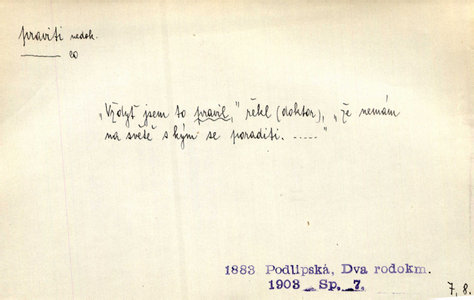 praviti nedok.
20
„Vždyť jsem to pravil,“ řekl (doktor), „že nemám
na světě s kým se poraditi. .....“
1883 Podlipská, Dva rodokm.
1903 Sp. 7.
7, 8.